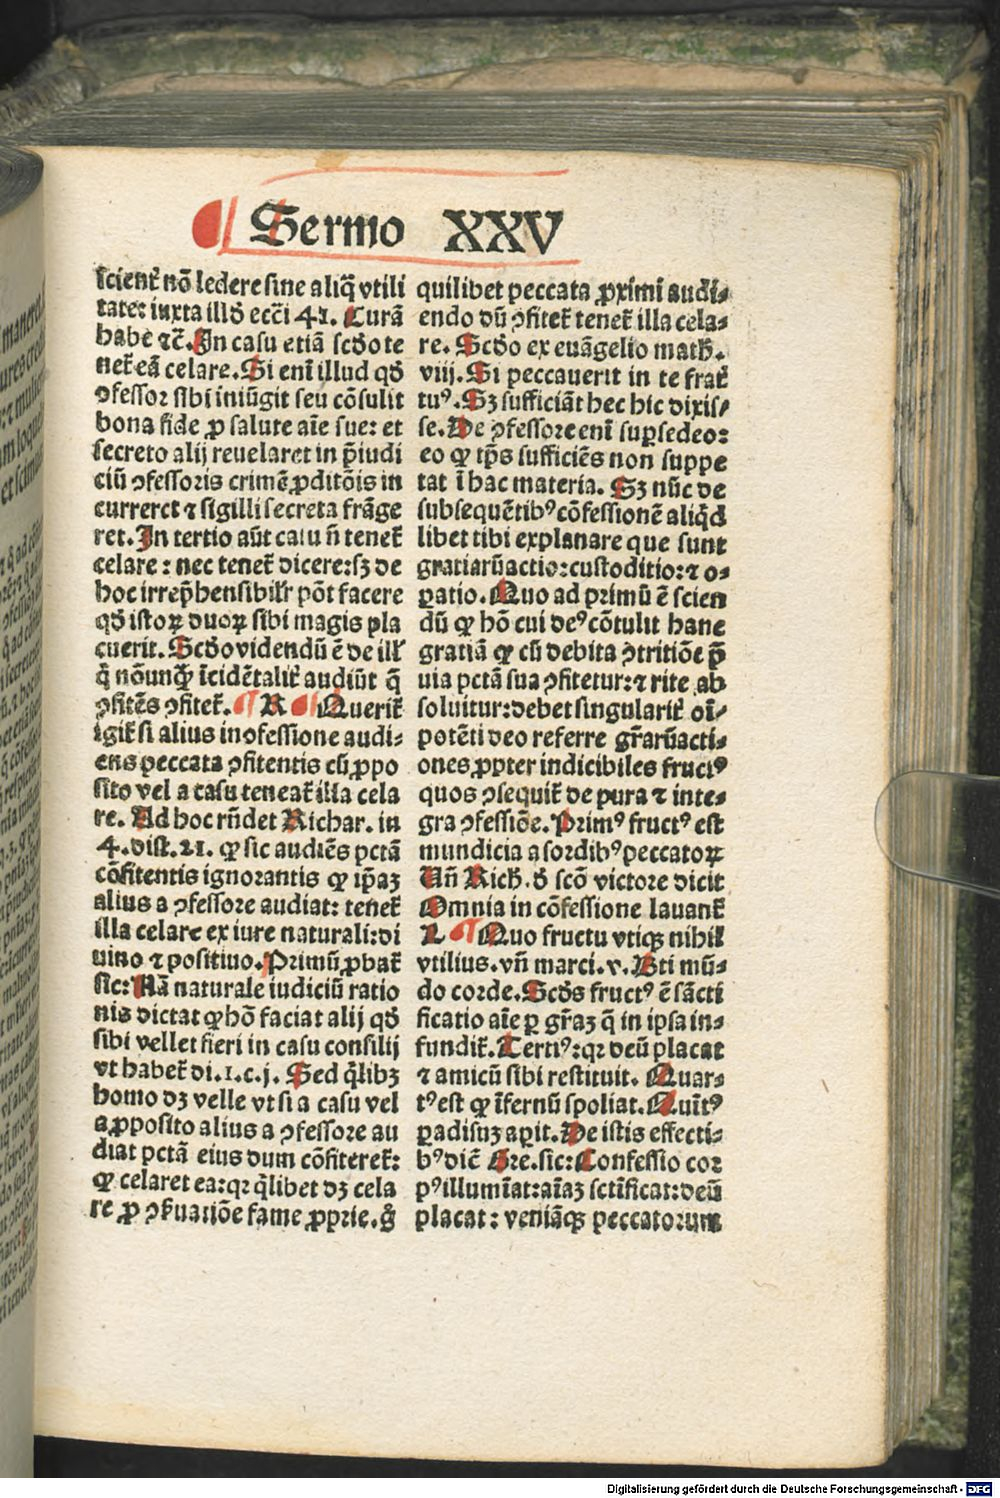 Sermo XXV
scient᷑ nō ledere sine aliq̄ vtili
tate: iuxta illđ ecc̄i 41. Curā
habe ⁊c̄. In casu etiā scđo te
net᷑ eā celare. Si eni illud qđ
ꝯfessor sibi iniūgit seu cōsulit
bona fide ꝓ salute aīe sue: et
secreto alij reuelaret in p̄iudi
ciū ꝯfessoris crimē ꝓditōis in
curreret ⁊ sigilli secreta frāge
ret. In tertio aūt casu n̄ tenet᷑
celare: nec tenet᷑ dicere: sꝫ de
hoc irrep̄hensibilr̄ pōt facere
qđ istoꝝ duoꝝ sibi magis pla
cuerit. Scđo videndū ē de ill̓
q̄ nōunꝙ̄ īcidētalit᷑ audiūt q̄
ꝯfitēs ꝯfitet᷑. R Querit᷑
igit᷑ si alius in ꝯfessione audi-
ens peccata ꝯfitentis cū ꝓpo
sito vel a casu teneat᷑ illa cela
re. Ad hoc rn̄det Richar. in
4. dist. 21. ꝙ sic audiēs pctā
cōfitentis ignorantis ꝙ ip̄aꝫ
alius a ꝯfessore audiat: tenet᷑
illa celare ex iure naturali: di
uino ⁊ positiuo. Primū ꝓbat᷑
sic: Nā naturale iudiciū ratio
nis dictat ꝙ hō faciat alij qđ
sibi vellet fieri in casu consilij
vt habet᷑ di. 1. c. j. Sed q̄libꝫ
homo dꝫ velle vt si a casu vel
a ꝓposito alius a ꝯfessore au
diat pctā eius dum cōfiteret᷑:
ꝙ celaret ea: qꝛ q̄libet dꝫ cela
re ꝓ ꝯseruatiōe fame ꝓprie. g̊
quilibet peccata ꝓximi audi-
endo dū ꝯfitet᷑ tenet᷑ illa cela-
re. Scđo ex euāgelio math̄.
viij. Si peccauerit in te frat᷑
tuꝰ. Sꝫ sufficiāt hec hic dixis-
se. De ꝯfessore eni suꝑsedeo:
eo ꝙ tp̄s sufficiēs non suppe
tat ī hac materia. Sꝫ nūc de
subsequētibꝰ cōfessionē aliq̄d
libet tibi explanare que sunt
gratiarū actio: custoditio: ⁊ o-
ꝑatio. Quo ad primū ē scien
dū ꝙ hō cui deꝰ cōtulit hanc
gratiā ꝙ cū debita ꝯtritiōe p̄
uia pctā sua ꝯfitetur: ⁊ rite ab
soluitur: debet singularit᷑ oī-
potēti deo referre gr̄arū acti-
ones ꝓpter indicibiles fructꝰ
quos ꝯsequit᷑ de pura ⁊ inte-
gra ꝯfessiōe. Primꝰ fructꝰ est
mundicia a sordibꝰ peccatoꝝ
Vn̄ Rich̄. đ scō victore dicit
Omnia in cōfessione lauant᷑
L Quo fructu vtiqꝫ nihil
vtilius. vn̄ marci. v. Bti mū-
do corde. Scđs fructꝰ ē sācti
ficatio aīe ꝑ gr̄aꝫ q̄ in ipsa in-
fundit᷑. Tertiꝰ: qꝛ deū placat
⁊ amicū sibi restituit. Quar-
tꝰ est ꝙ īfernū spoliat. Quītꝰ
ꝑadisuꝫ aꝑit. De istis effecti-
bꝰ dic̄ Gre. sic: Confessio cor
pꝰ illumīat: aīaꝫ sctīficat: deū
placat: veniāqꝫ peccatorum
Digitalisierung gefördert durch die Deutsche Forschungsgemeinschaft - DFG